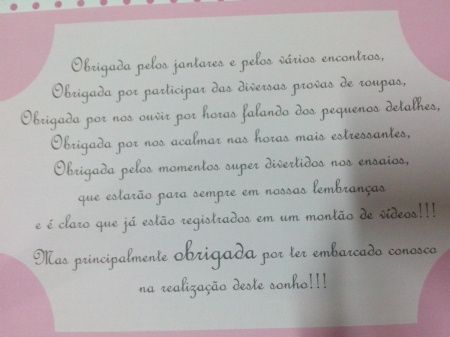 Obrigada pelos jantares e pelos vários encontros,
Obrigada por participar das diversas provas de roupas,
Obrigada por nos ouvir por horas falando dos pequenos detalhes,
Obrigada por nos acalmar nas horas mais estressantes,
Obrigada pelos momentos super divertidos nos ensaios,
que estarão para sempre em nossas lembranças
e é claro que já estão registrados em um montão de vídeos!!!
Mas principalmente obrigada por ter embarcado conosco
na realização deste sonho!!!